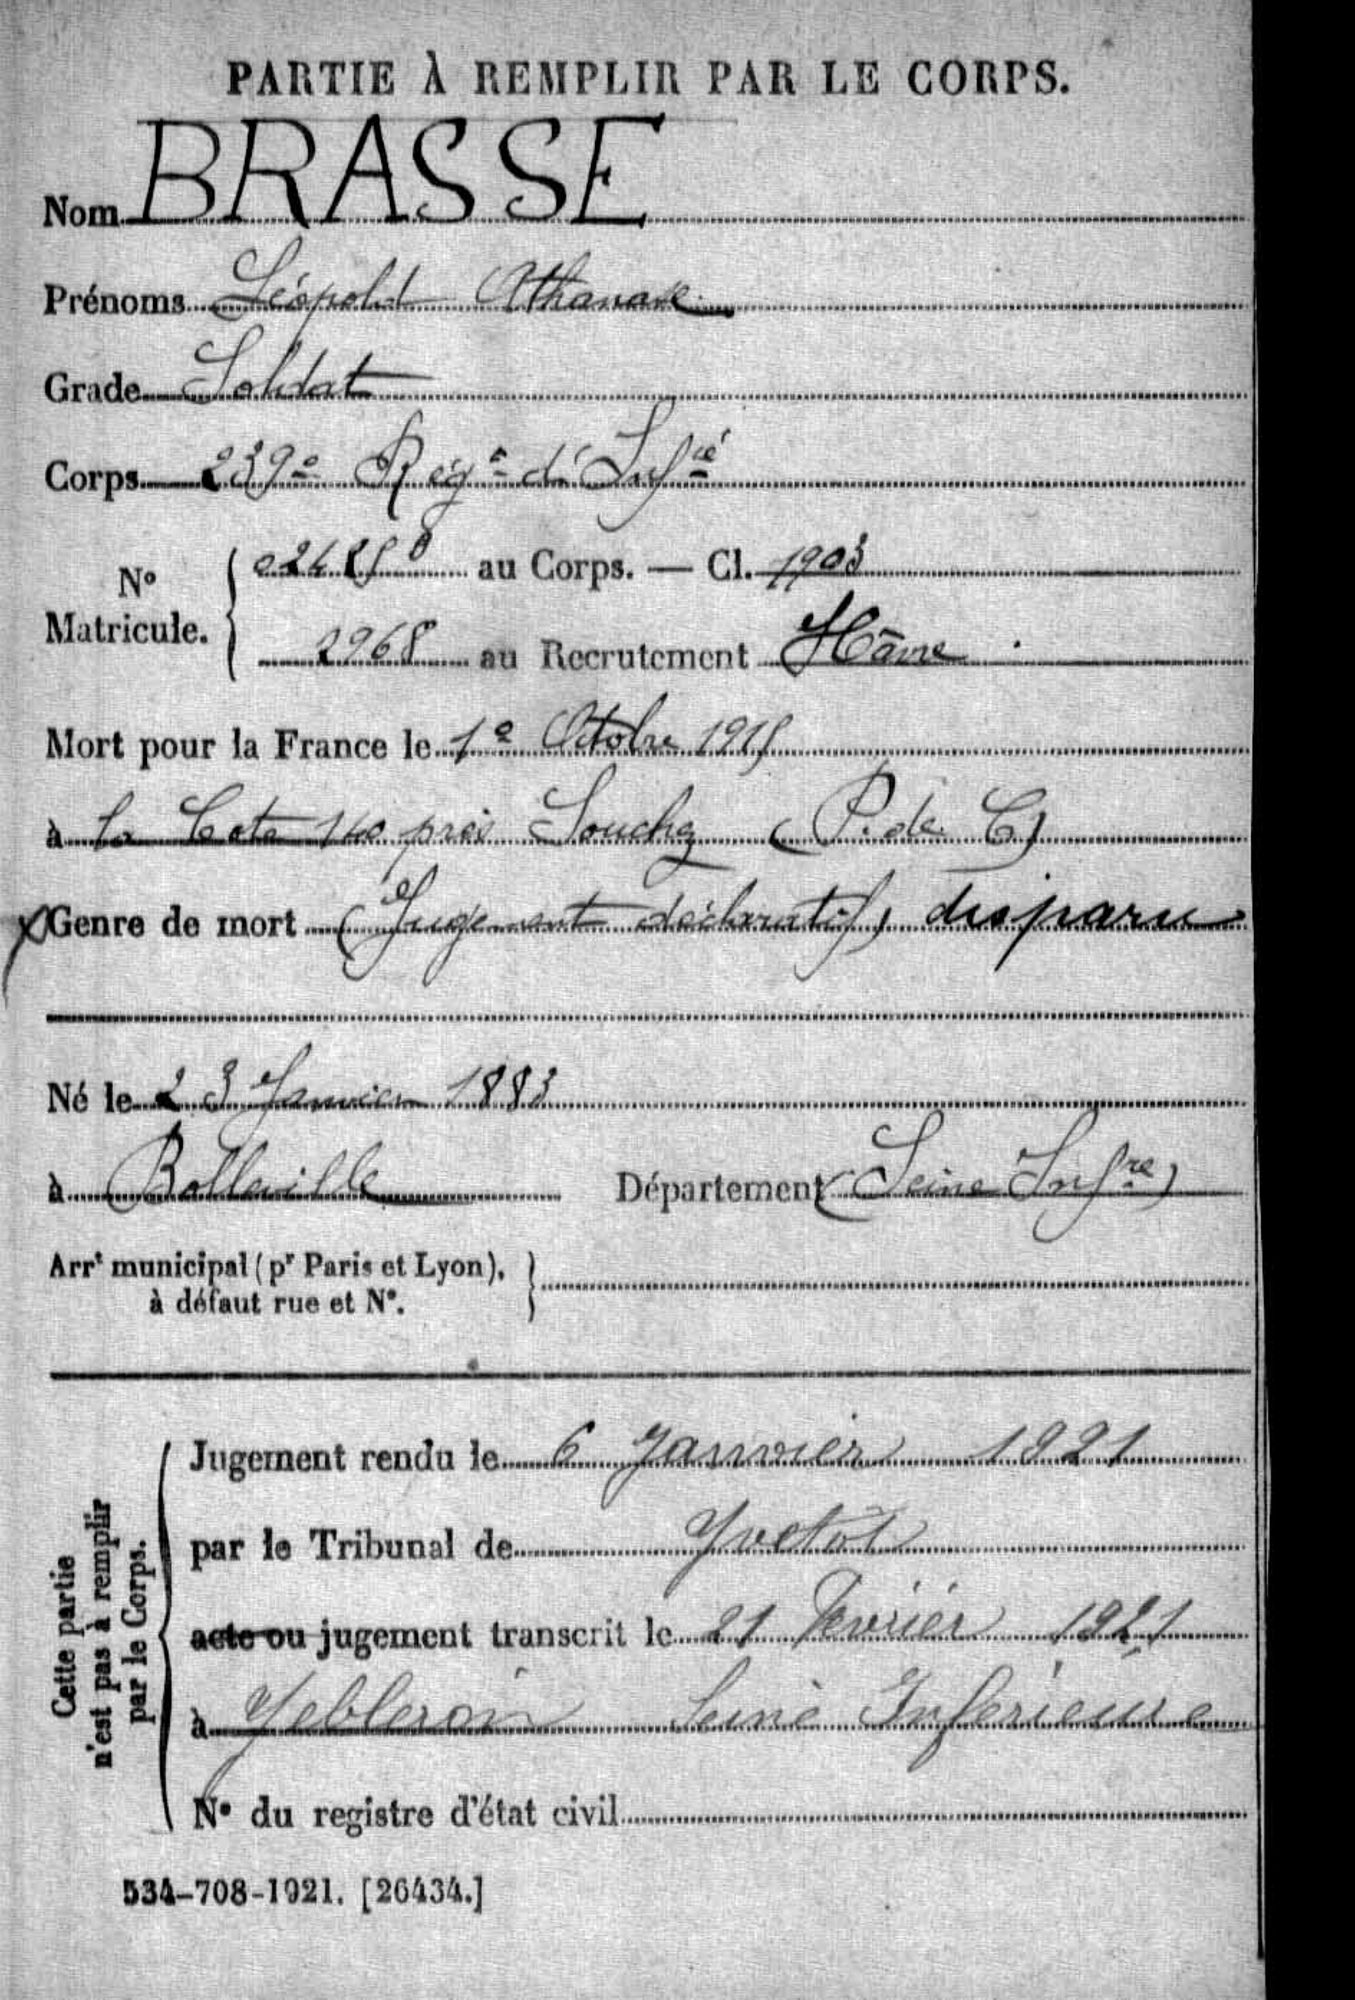 PARTIE À REMPLIR PAR LE CORPS.
Nom BRASSE
Prénoms Léopold Athanase
Grade Soldat
Corps 239e Régt d'Infie
No Matricule. { au Corps. — Cl. 1903
2968 au Recrutement Hâvre
Mort pour la France le 1e Octobre 1915
à la Cote 140 près Souchez (P. de C)
Genre de mort (Jugement déclaratif) disparu
Né le 23 Janvier 1883
à Bolleville Département (Seine Infre)
Arrt municipal (pr Paris et Lyon), }
à défaut rue et No.
Cette partie
n'est pas à remplir
par le Corps.
Jugement rendu le 6 Janvier 1921
par le Tribunal de Yvetot
acte ou jugement transcrit le 21 Fevrier 1921
à Yebleron Seine Inferieure
No du registre d'état civil
534-708-1921. [26434.]